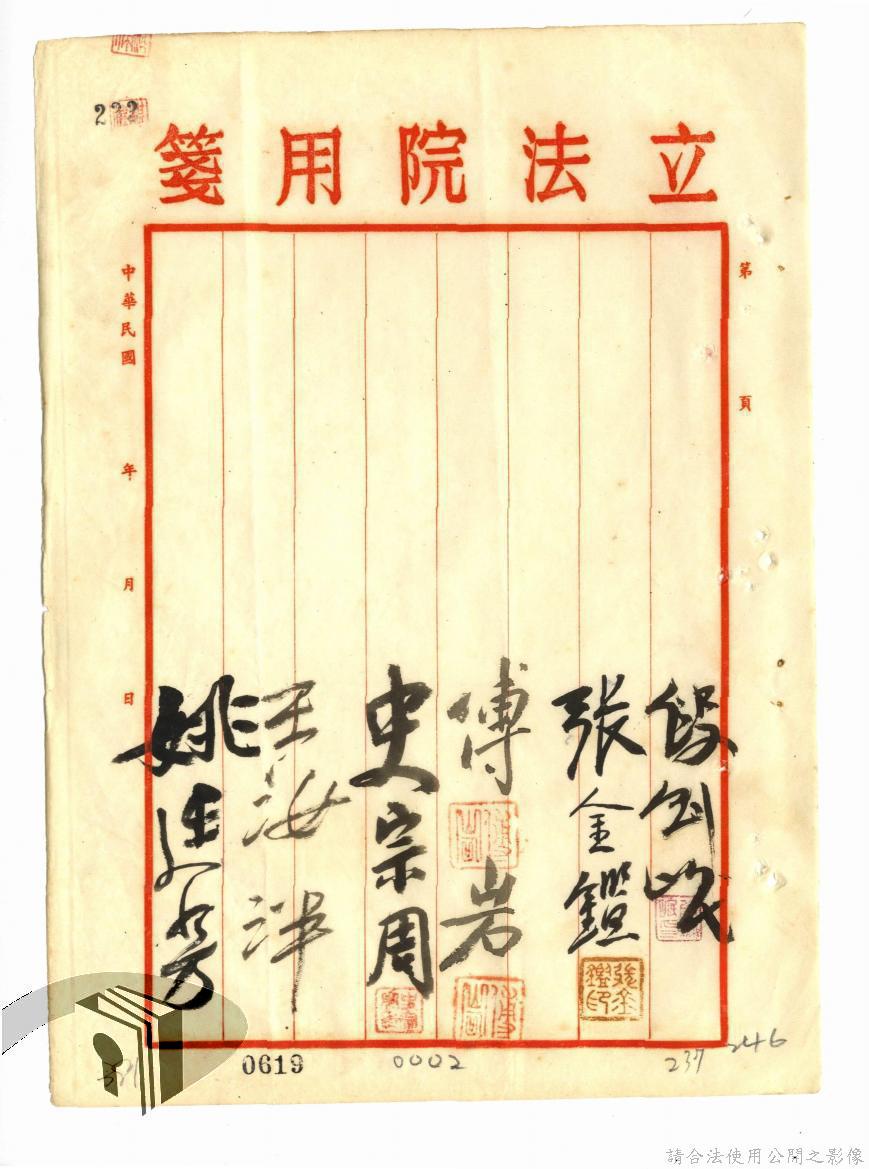 立法院用箋
第 頁
段劍岷
張金鑑
傅岩
史宗周
王汝泮
姚廷芳
中華民國 年 月 日
張金鑑印
0619
0002
237
246
請合法使用公開之影像